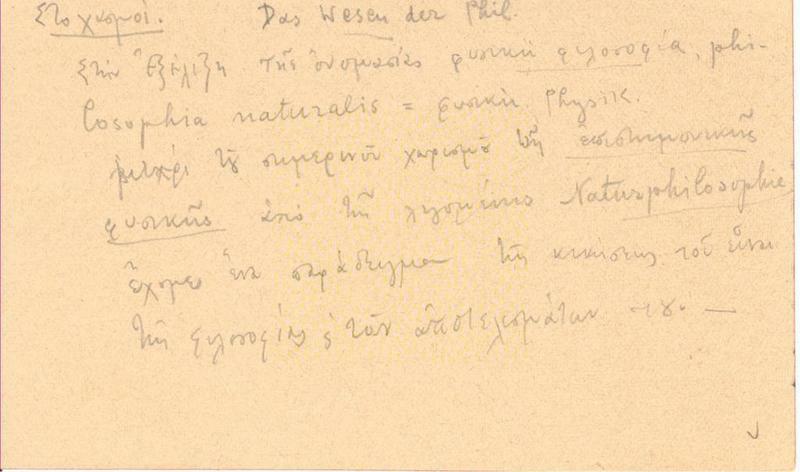 Στοχασμοί. Das Wesen der Phil.
Στὴν ἐξέλιξη τῆς ὀνομασίας φυσικὴ φιλοσοφία, phi-
losophia naturalis = φυσική. Physik.
μέχρι τοῦ σημερινοῦ χωρισμοῦ τῆς ἐπιστημονικῆς
φυσικῆς ἀπὸ τὴ λεγομένης Naturphilosophie
ἔχομε ἕνα παράδειγμα τῆς κινήσεως τοῦ εἶναι
τῆς φιλοσοφίας τῶν ἀποτελεσμάτων